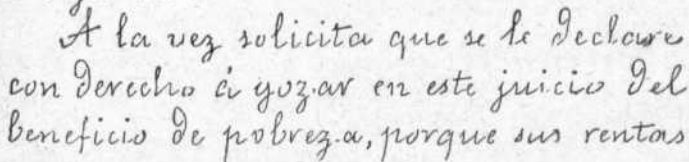 A la vez solicita que se le declare
con derecho á gozar en este juicio del
beneficio de pobreza, porque sus rentas